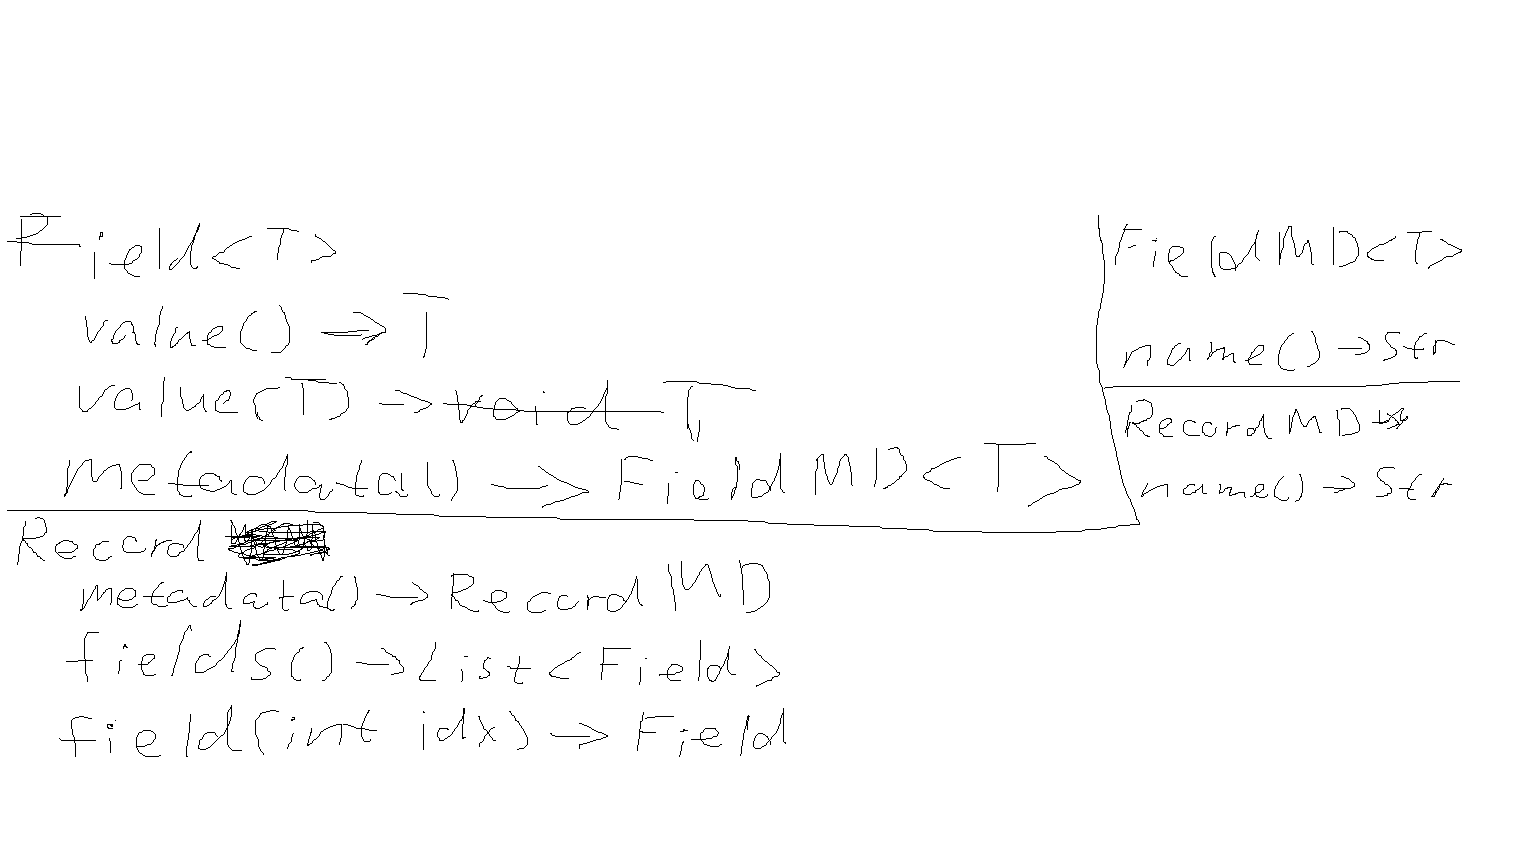 Field<T>
value() → T
value(T) → void T
metadata() → FieldMD<T>
Record
metadata() → RecordMD
fields() → List<Field>
field(int idx) → Field
FieldMD<T>
name() → Str
RecordMD
name() → Str